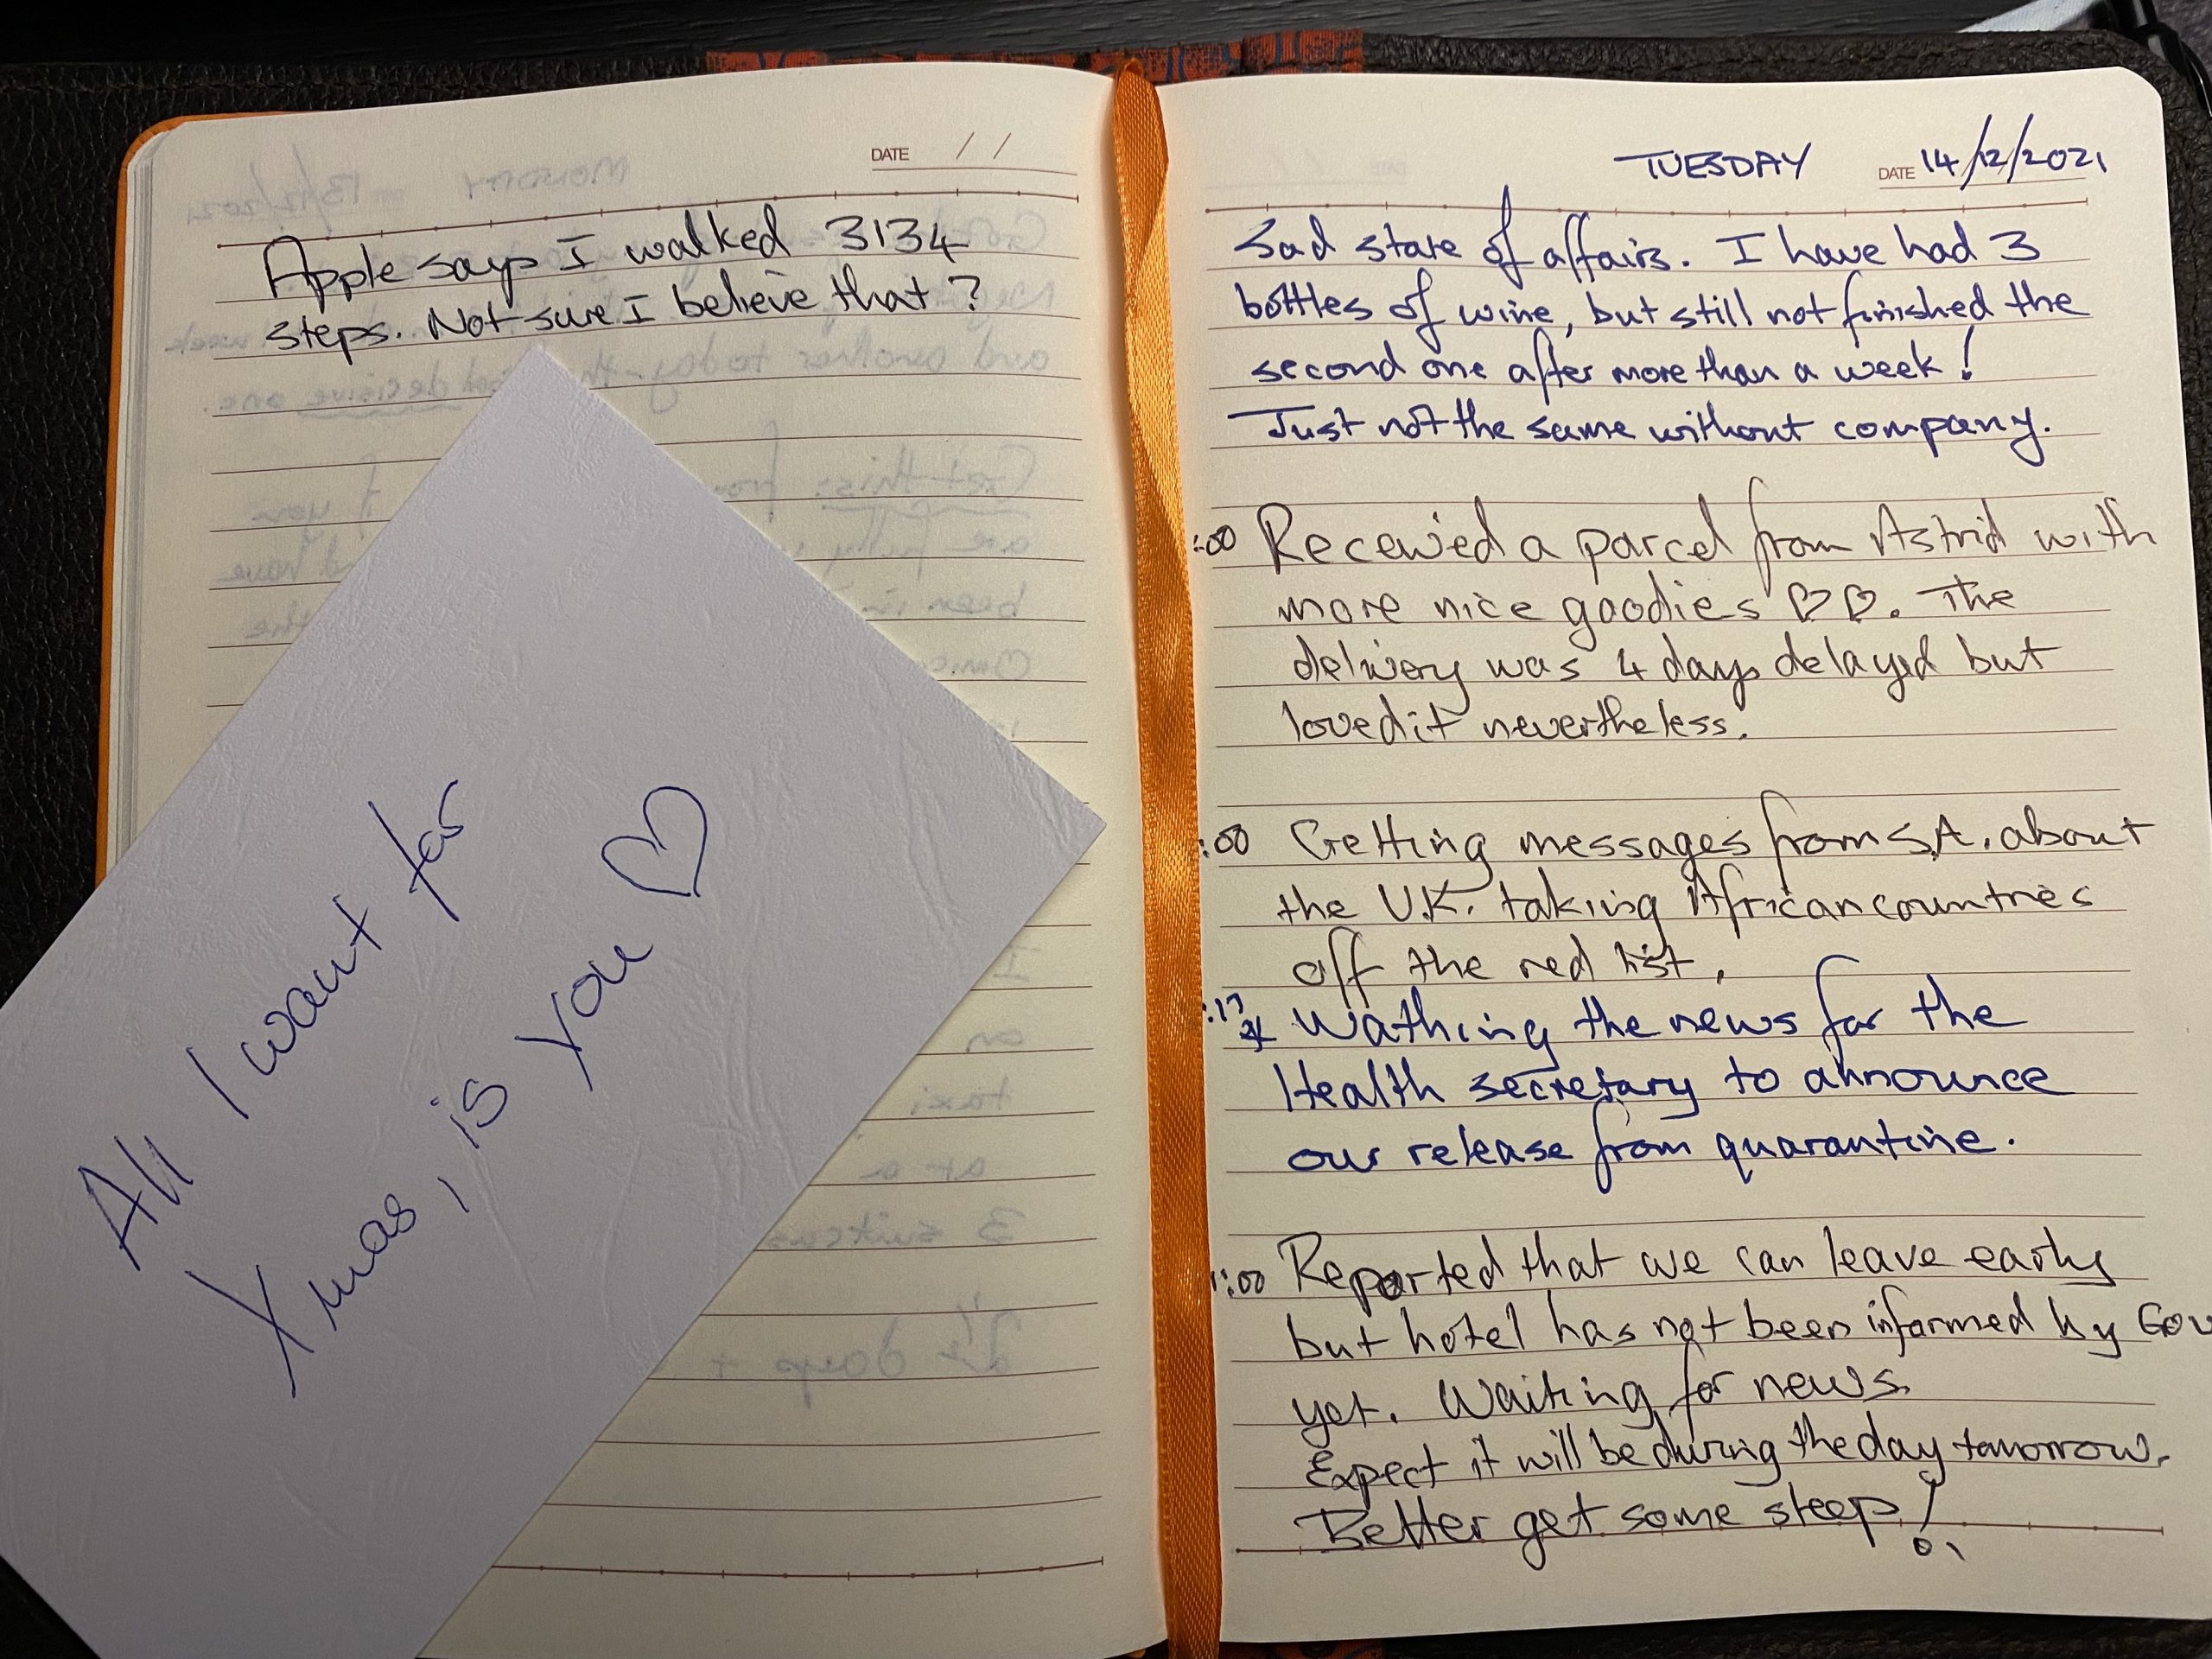 DATE / /
Apple says I walked 3134
steps. Not sure I believe that?
All I want for
Xmas, is you ♡
TUESDAY DATE 14/12/2021
Sad state of affairs. I have had 3
bottles of wine, but still not finished the
second one after more than a week!
Just not the same without company.
:00 Received a parcel from Astrid with
more nice goodies ♡♡. The
delivery was 4 days delayed but
loved it nevertheless.
:00 Getting messages from S.A. about
the U.K. taking African countries
off the red list.
:17 Wathing the news for the
Health secretary to announce
our release from quarantine.
:00 Reported that we can leave early
but hotel has not been informed by Gov
yet. Waiting for news.
Expect it will be during the day tomorrow.
Better get some sleep!